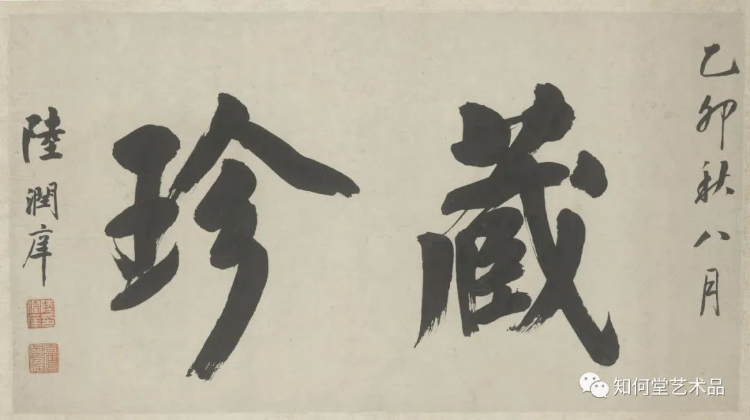 乙卯秋八月
藏珍
陸潤庠
知何堂艺术品